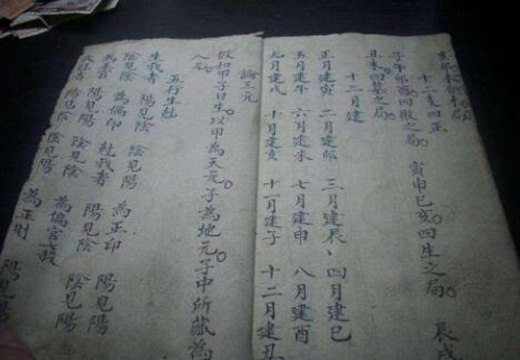 十二支四正
子午卯酉。四敗之局。 寅申巳亥。四生之局。 辰戌
丑未四墓之局。
十二月建
正月建寅 二月建卯 三月建辰 四月建巳
五月建午 六月建未 七月建申 八月建酉
九月建戌 十月建亥 十一月建子 十二月建丑
論三元
假如甲子日生。以甲為天元。子為地元。子中所藏為
人元。
五行生尅
生我者 陽見陰 陰見陽 為正印 陽見陽
陰見陰 為偏印 尅我者 陽見陰 陰見陽
為官 陽見陽 陰見陰 為偏官
我尅者 陽見陰 陰見陽 為正財 陽見陽